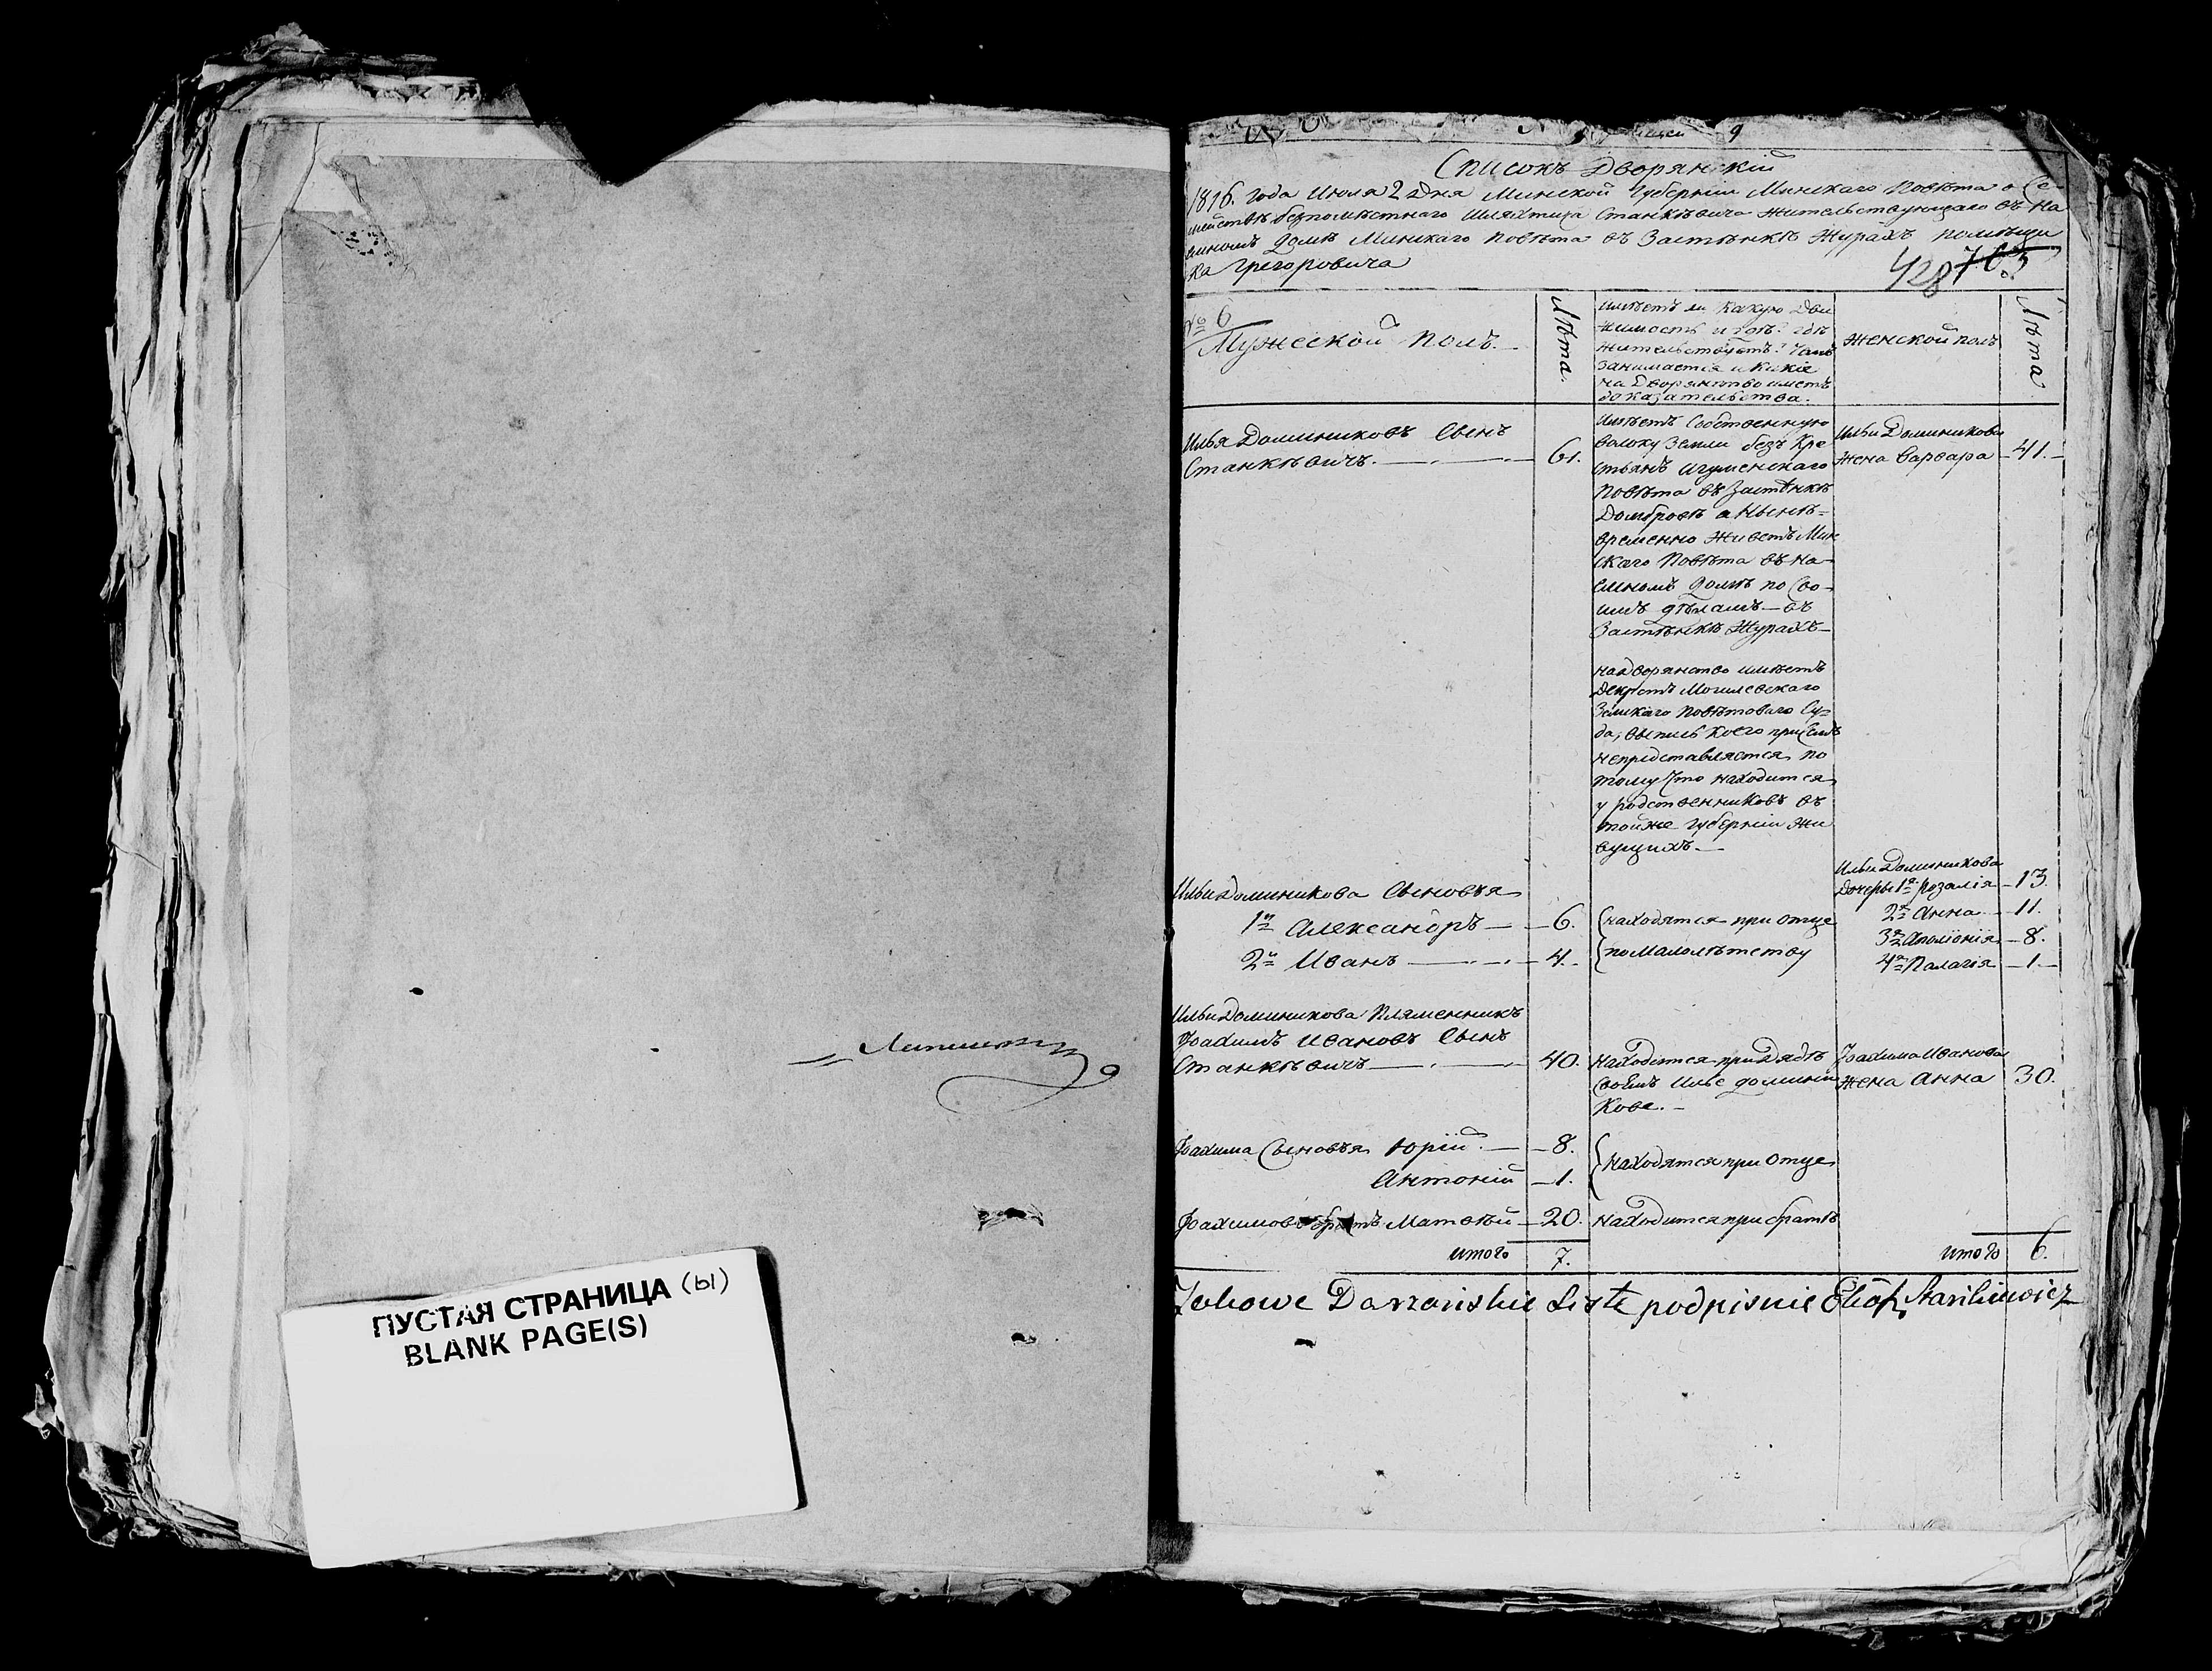 ПУСТАЯ СТРАНИЦА (ы)
BLANK PAGE(S)
Списокъ Дворянскій
1816. года Июля 2 дня Минской Губерніи Минскаго Повѣта о Се-
мействѣ безпомѣстнаго Шляхтича Станкѣвича жительствующаго въ На
емномъ Домѣ Минскаго Повѣта въ Застѣнкѣ Журахъ помѣщи
ка Грегоровича
428 703
№ 6
Мужеской полъ.
Лѣта.
имѣетъ ли какую Дви
жимость и гдѣ? гдѣ
жительствуетъ? Чемъ
Занимается и какіе
на Дворянство имеетъ
доказательства.
женской полъ
Лѣта
Илья Доминиковъ Сынъ
Станкѣвичъ. 61.
имѣетъ Собственную
волоку Земли безъ Кре
стьянъ Игуменскаго
Повѣта въ Застѣнкѣ
Домбровѣ а Нынѣ-
временно живетъ Мин
скаго Повѣта въ на-
емномъ Домѣ по Сво-
имъ дѣламъ — въ
Застѣнкѣ Журахъ —
Ильи Доминикова
жена Варвара 41.
на дворянство имѣетъ
Декретъ Могилевскаго
Земскаго Повѣтоваго Су-
да, выпись коего при Семъ
непредставляется по
тому что находится
у родственниковъ въ
той же губерніи жи
вущихъ. —
Ильи Доминикова Сыновья
1й Александръ — 6.
2й Иванъ — 4.
находятся при отце
по малолѣтству
Ильи Доминикова
Дочеры 1я Розалія — 13.
2я Анна — 11.
3я Аполіонія — 8.
4я Палагія — 1.
Ильи Доминикова Пляменникъ
Іоахимъ Ивановъ Сынъ
Станкѣвичъ — 40.
находится при Дядѣ
Своемъ Илье Домини
кове. —
Іоахима Иванова
жена Анна 30.
Іоахима Сыновья Юрій — 8.
Антоній — 1.
находятся при Отце
Іоахимовъ братъ Матвѣй — 20. находится при братѣ
итого 7. итого 6.
podpisuie Eliasz Stankiewicz